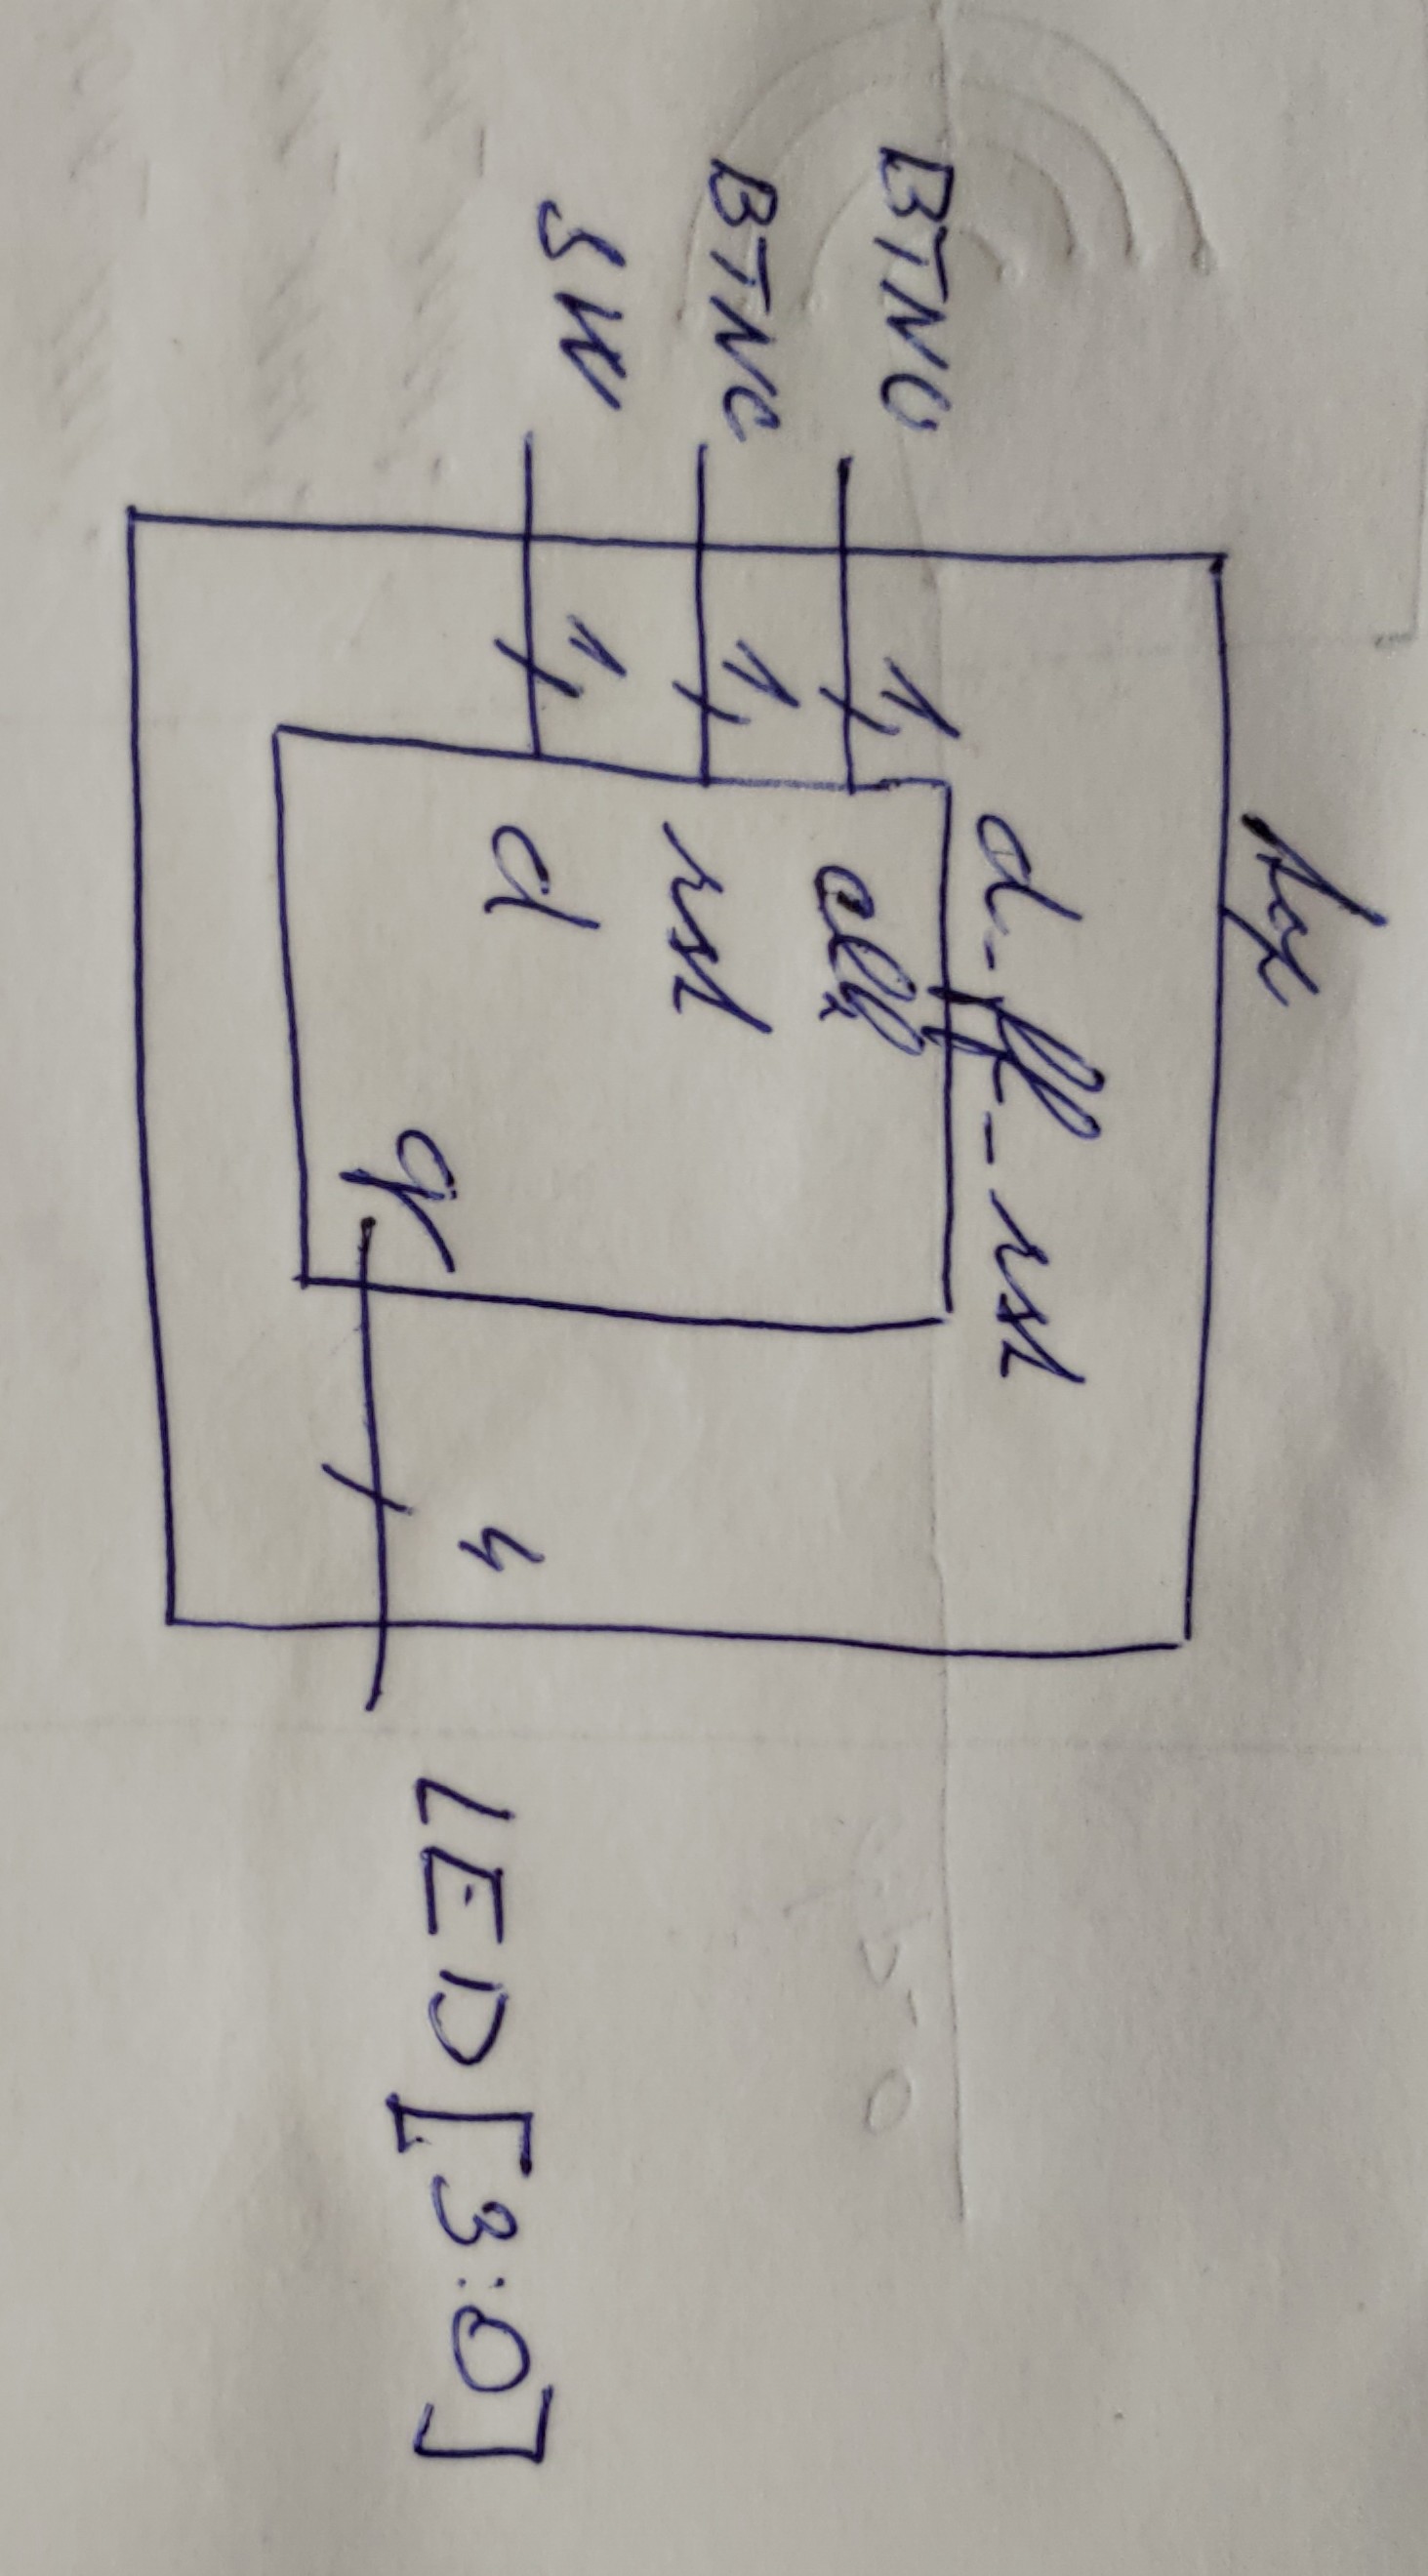 top
d_ff_rst
BTNU
1
clk
BTNC
1
rst
SW
1
d
q
4
LED[3:0]